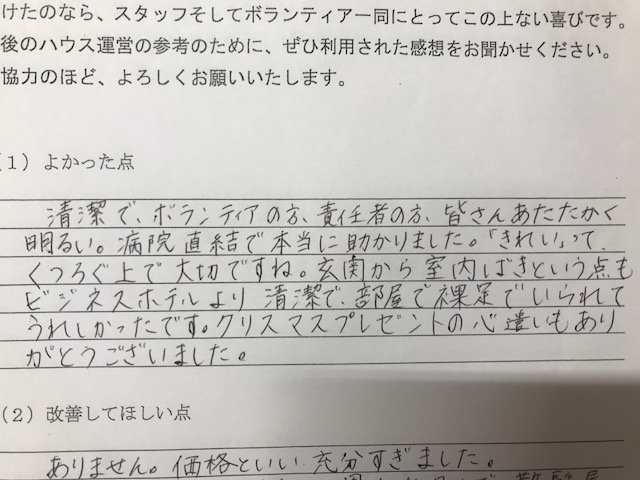 けたのなら、スタッフそしてボランティア一同にとってこの上ない喜びです。
後のハウス運営の参考のために、ぜひ利用された感想をお聞かせください。
協力のほど、よろしくお願いいたします。
(1) よかった点
清潔で、ボランティアの方、責任者の方、皆さんあたたかく
明るい。病院直結で本当に助かりました。「きれい」って、
くつろぐ上で大切ですね。玄関から室内ばきという点も
ビジネスホテルより清潔で、部屋で裸足でいられて
うれしかったです。クリスマスプレゼントの心遣いもあり
がとうございました。
(2) 改善してほしい点
ありません。価格といい充分すぎました。